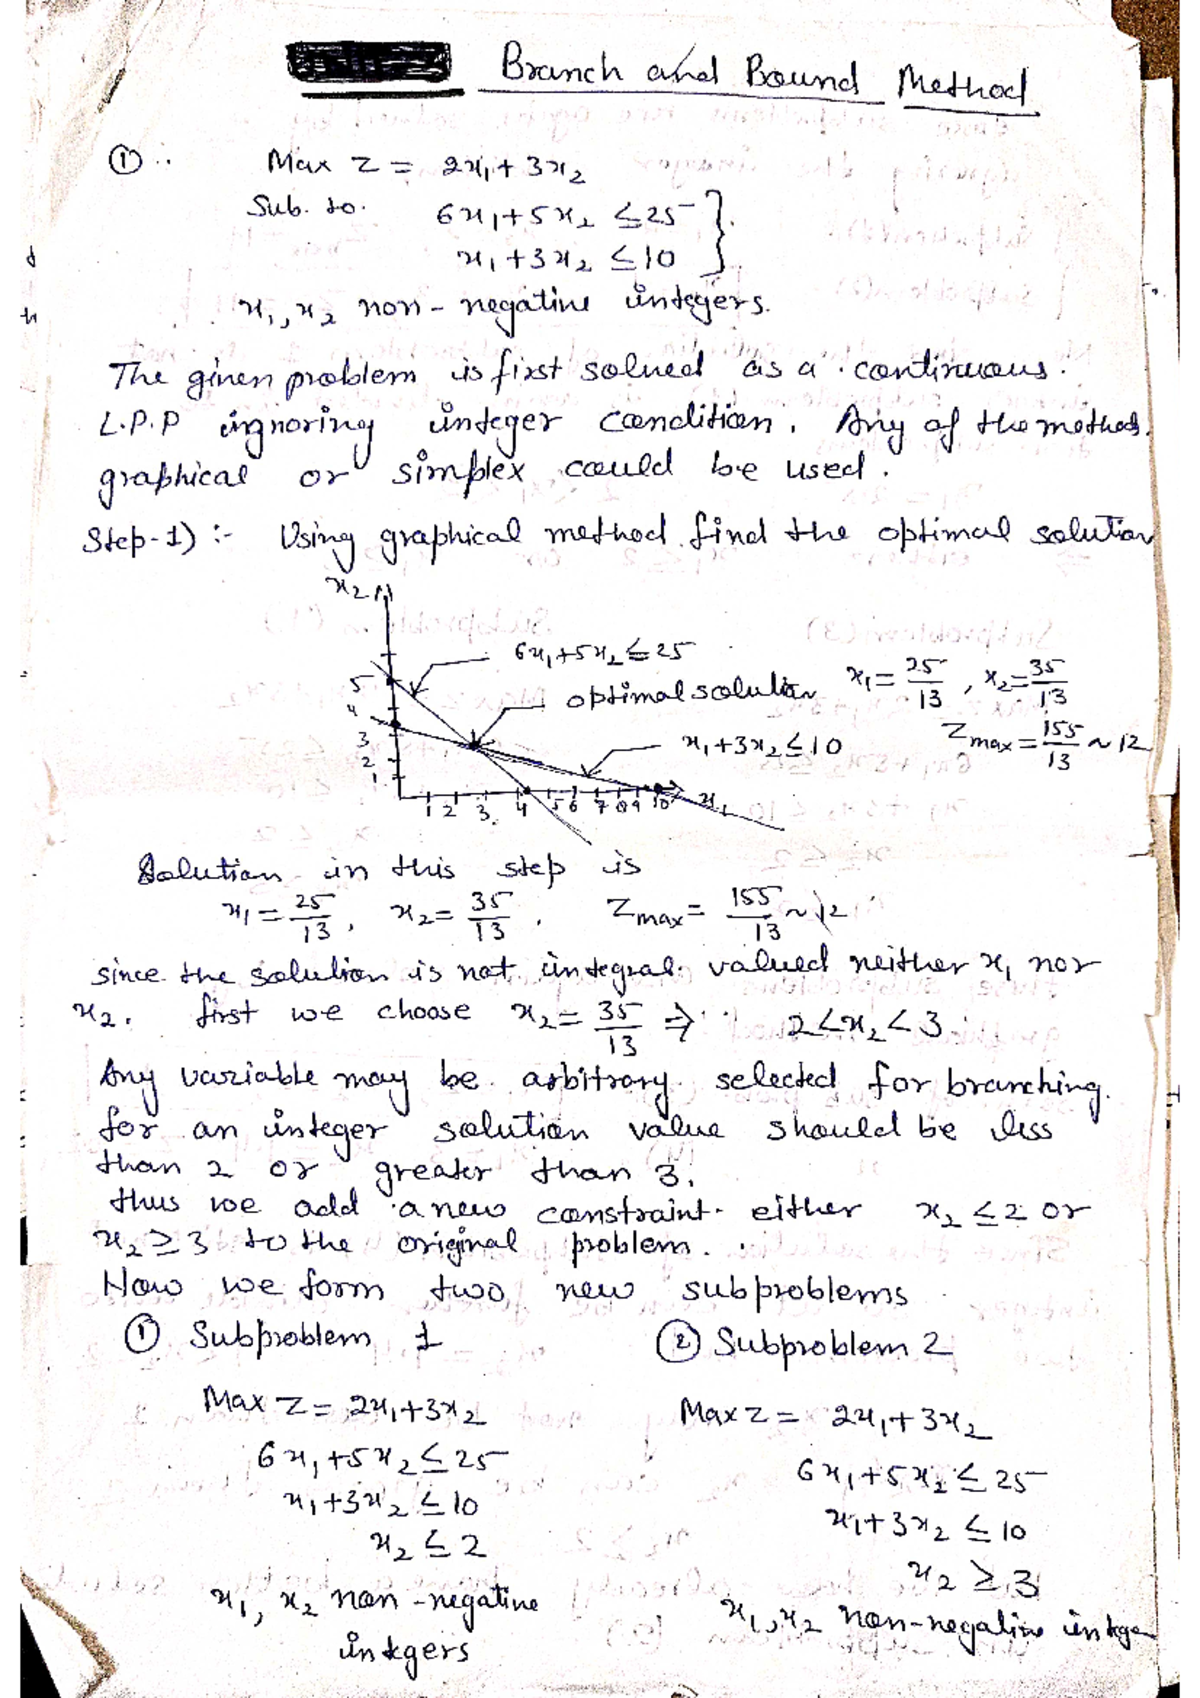 Branch and Bound Method
① Max Z = 2x₁ + 3x₂
Sub. to. 6x₁ + 5x₂ ≤ 25
x₁ + 3x₂ ≤ 10
x₁, x₂ non-negative integers.
The given problem is first solved as a continuous
L.P.P ingnoring integer condition. Any of the methods.
graphical or simplex could be used.
Step-1) :- Using graphical method find the optimal solution
x₂
6x₁ + 5x₂ ≤ 25
optimal solution
x₁ = 25/13, x₂ = 35/13
x₁ + 3x₂ ≤ 10
Zmax = 155/13 ~ 12
5
4
3
2
1
1 2 3 4 5 6 7 8 9 10 x₁
Solution in this step is
x₁ = 25/13, x₂ = 35/13, Zmax = 155/13 ~ 12
since the solution is not integral valued neither x₁ nor
x₂. first we choose x₂ = 35/13 ⇒ 2 < x₂ < 3
Any variable may be arbitrary selected for branching.
for an integer solution value should be less
than 2 or greater than 3.
thus we add a new constraint either x₂ ≤ 2 or
x₂ ≥ 3 to the original problem.
Now we form two new subproblems
① Subproblem 1
Max Z = 2x₁ + 3x₂
6x₁ + 5x₂ ≤ 25
x₁ + 3x₂ ≤ 10
x₂ ≤ 2
x₁, x₂ non-negative
integers
② Subproblem 2
Max Z = 2x₁ + 3x₂
6x₁ + 5x₂ ≤ 25
x₁ + 3x₂ ≤ 10
x₂ ≥ 3
x₁, x₂ non-negative